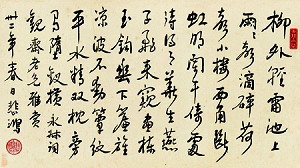 柳外輕雷池上
雨雨聲滴碎荷
聲小樓西角斷
虹明闌干倚處
待得月華生燕
子飛來窺畫棟
玉鈎垂下簾旌
凉波不動簟紋
平水精雙枕旁
有墮釵橫 永叔詞
觀齋老兄雅賞
年春日悲鴻